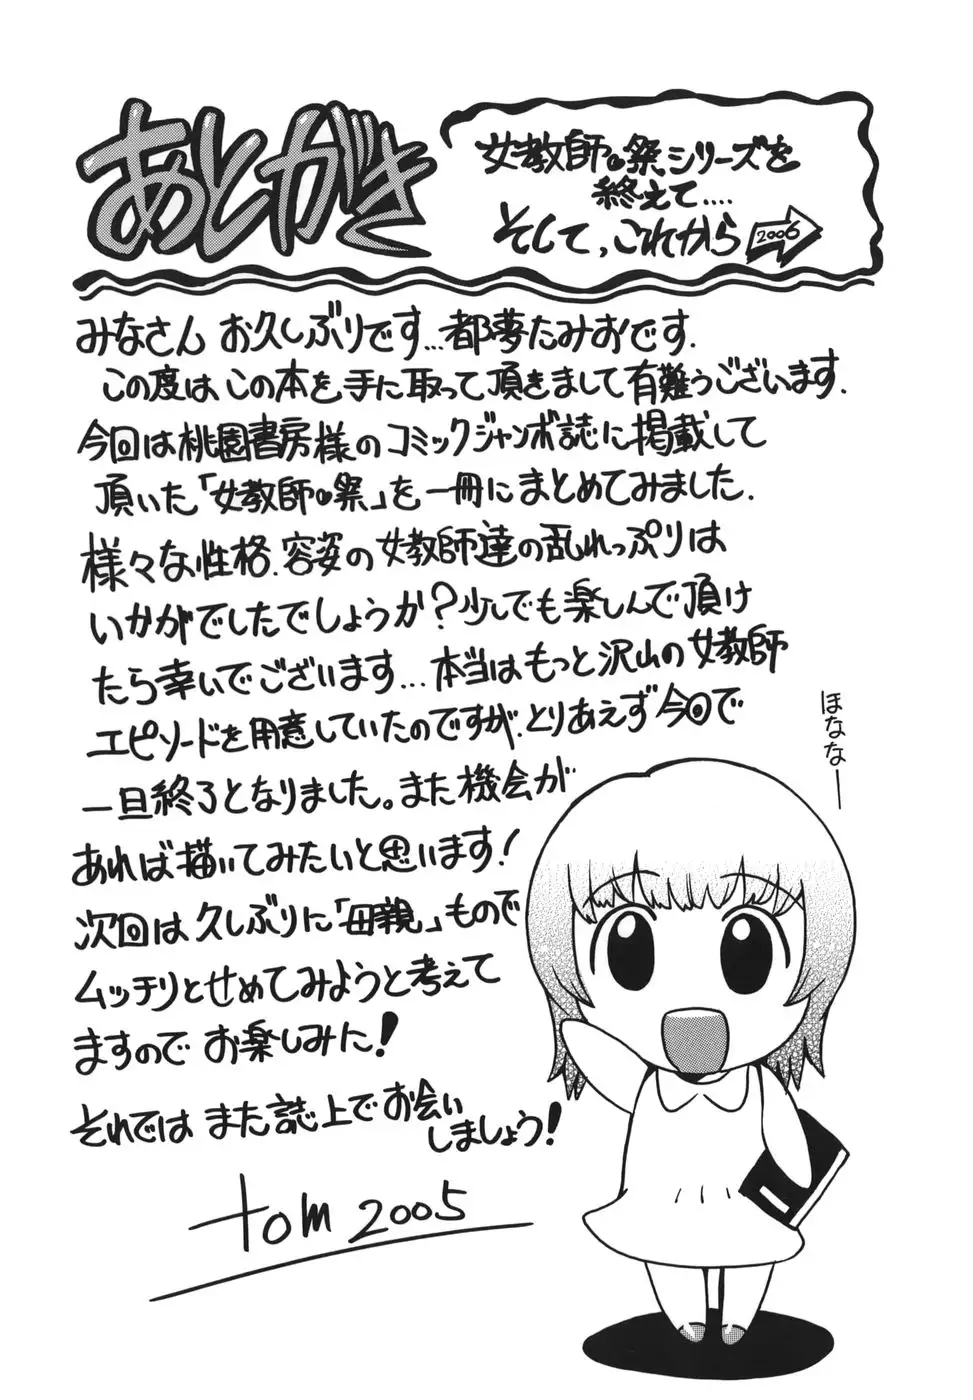 あとがき
女教師の祭シリーズを
終えて‥‥
そして、これから
2006
みなさん お久しぶりです…都夢たみおです.
この度は、この本を、手に取って頂きまして有難うございます.
今回は桃園書房様のコミックジャンボ誌に掲載して
頂いた「女教師の祭」を一冊にまとめてみました.
様々な性格.容姿の女教師達の乱れっぷりは
いかがでしたでしょうか?少しでも楽しんで頂け
たら幸いでございます…本当はもっと沢山の女教師
エピソードを用意していたのですが、とりあえず今回で
一旦終了となりました。また機会が
あれば描いてみたいと思います!
次回は久しぶりに「母親」もので
ムッチリとせめてみようと考えて
ますので お楽しみに!
それでは また誌上でお会い
しましょう!
tom 2005
ほななー